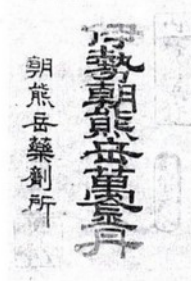 伊勢朝熊岳萬金丹
朝熊岳藥劑所